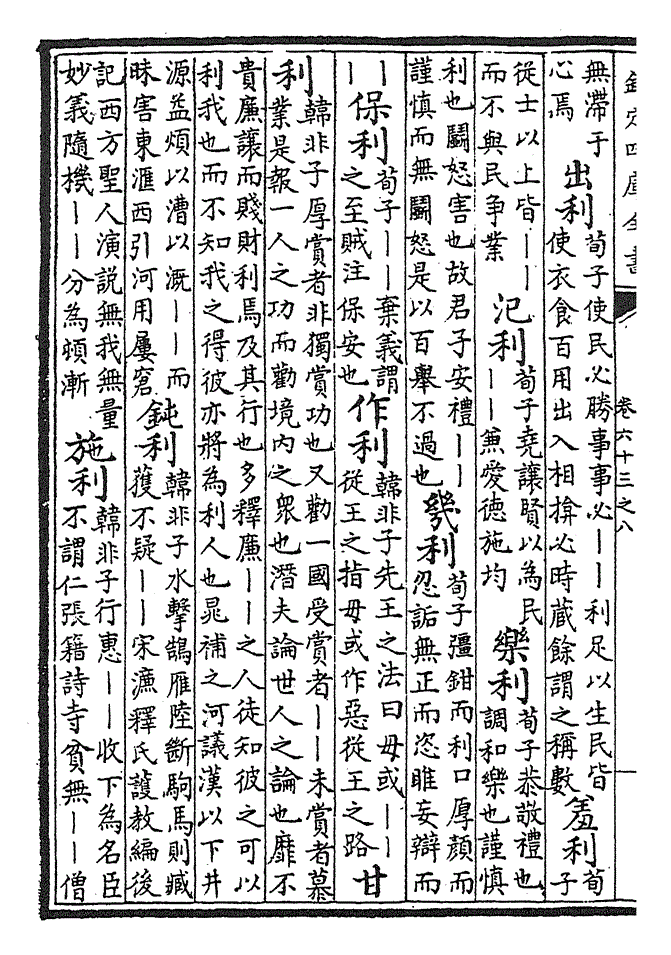 欽定四庫全書 卷六十三之八
無滯于心焉 出利 荀子使民必勝事事必丨丨利足以生民皆使衣食百用出入相揜必時蔵餘謂之稱數 羞利 荀子
從士以上皆丨丨而不與民争業 汜利 荀子堯讓賢以為民丨丨兼愛德施均 樂利 荀子恭敬禮也調和樂也謹慎
利也鬭怒害也故君子安禮丨丨謹慎而無鬭怒是以百舉不過也 幾利 荀子彊鉗而利口厚顔而忍詬無正而恣睢妄辯而
丨丨 保利 荀子丨丨棄義謂之至賊注保安也 作利 韓非子先王之法曰毋或丨丨從王之指毋或作惡從王之路 甘
利 韓非子厚賞者非獨賞功也又勸一國受賞者丨丨未賞者慕業是報一人之功而勸境内之衆也潛夫論世人之論也靡不
貴廉讓而賤財利焉及其行也多釋廉丨丨之人徒知彼之可以利我也而不知我之得彼亦將為利人也晁補之河議漢以下井
源益煩以漕以溉丨丨而昧害東滙西引河用屢窒 鈍利 韓非子水擊鵠雁陸斷駒馬則臧獲不疑丨丨宋濂釋氏護教編後
記西方聖人演説無我無量妙義隨機丨丨分為頓漸 施利 韓非子行惠丨丨收下為名臣不謂仁張籍詩寺貧無丨丨僧